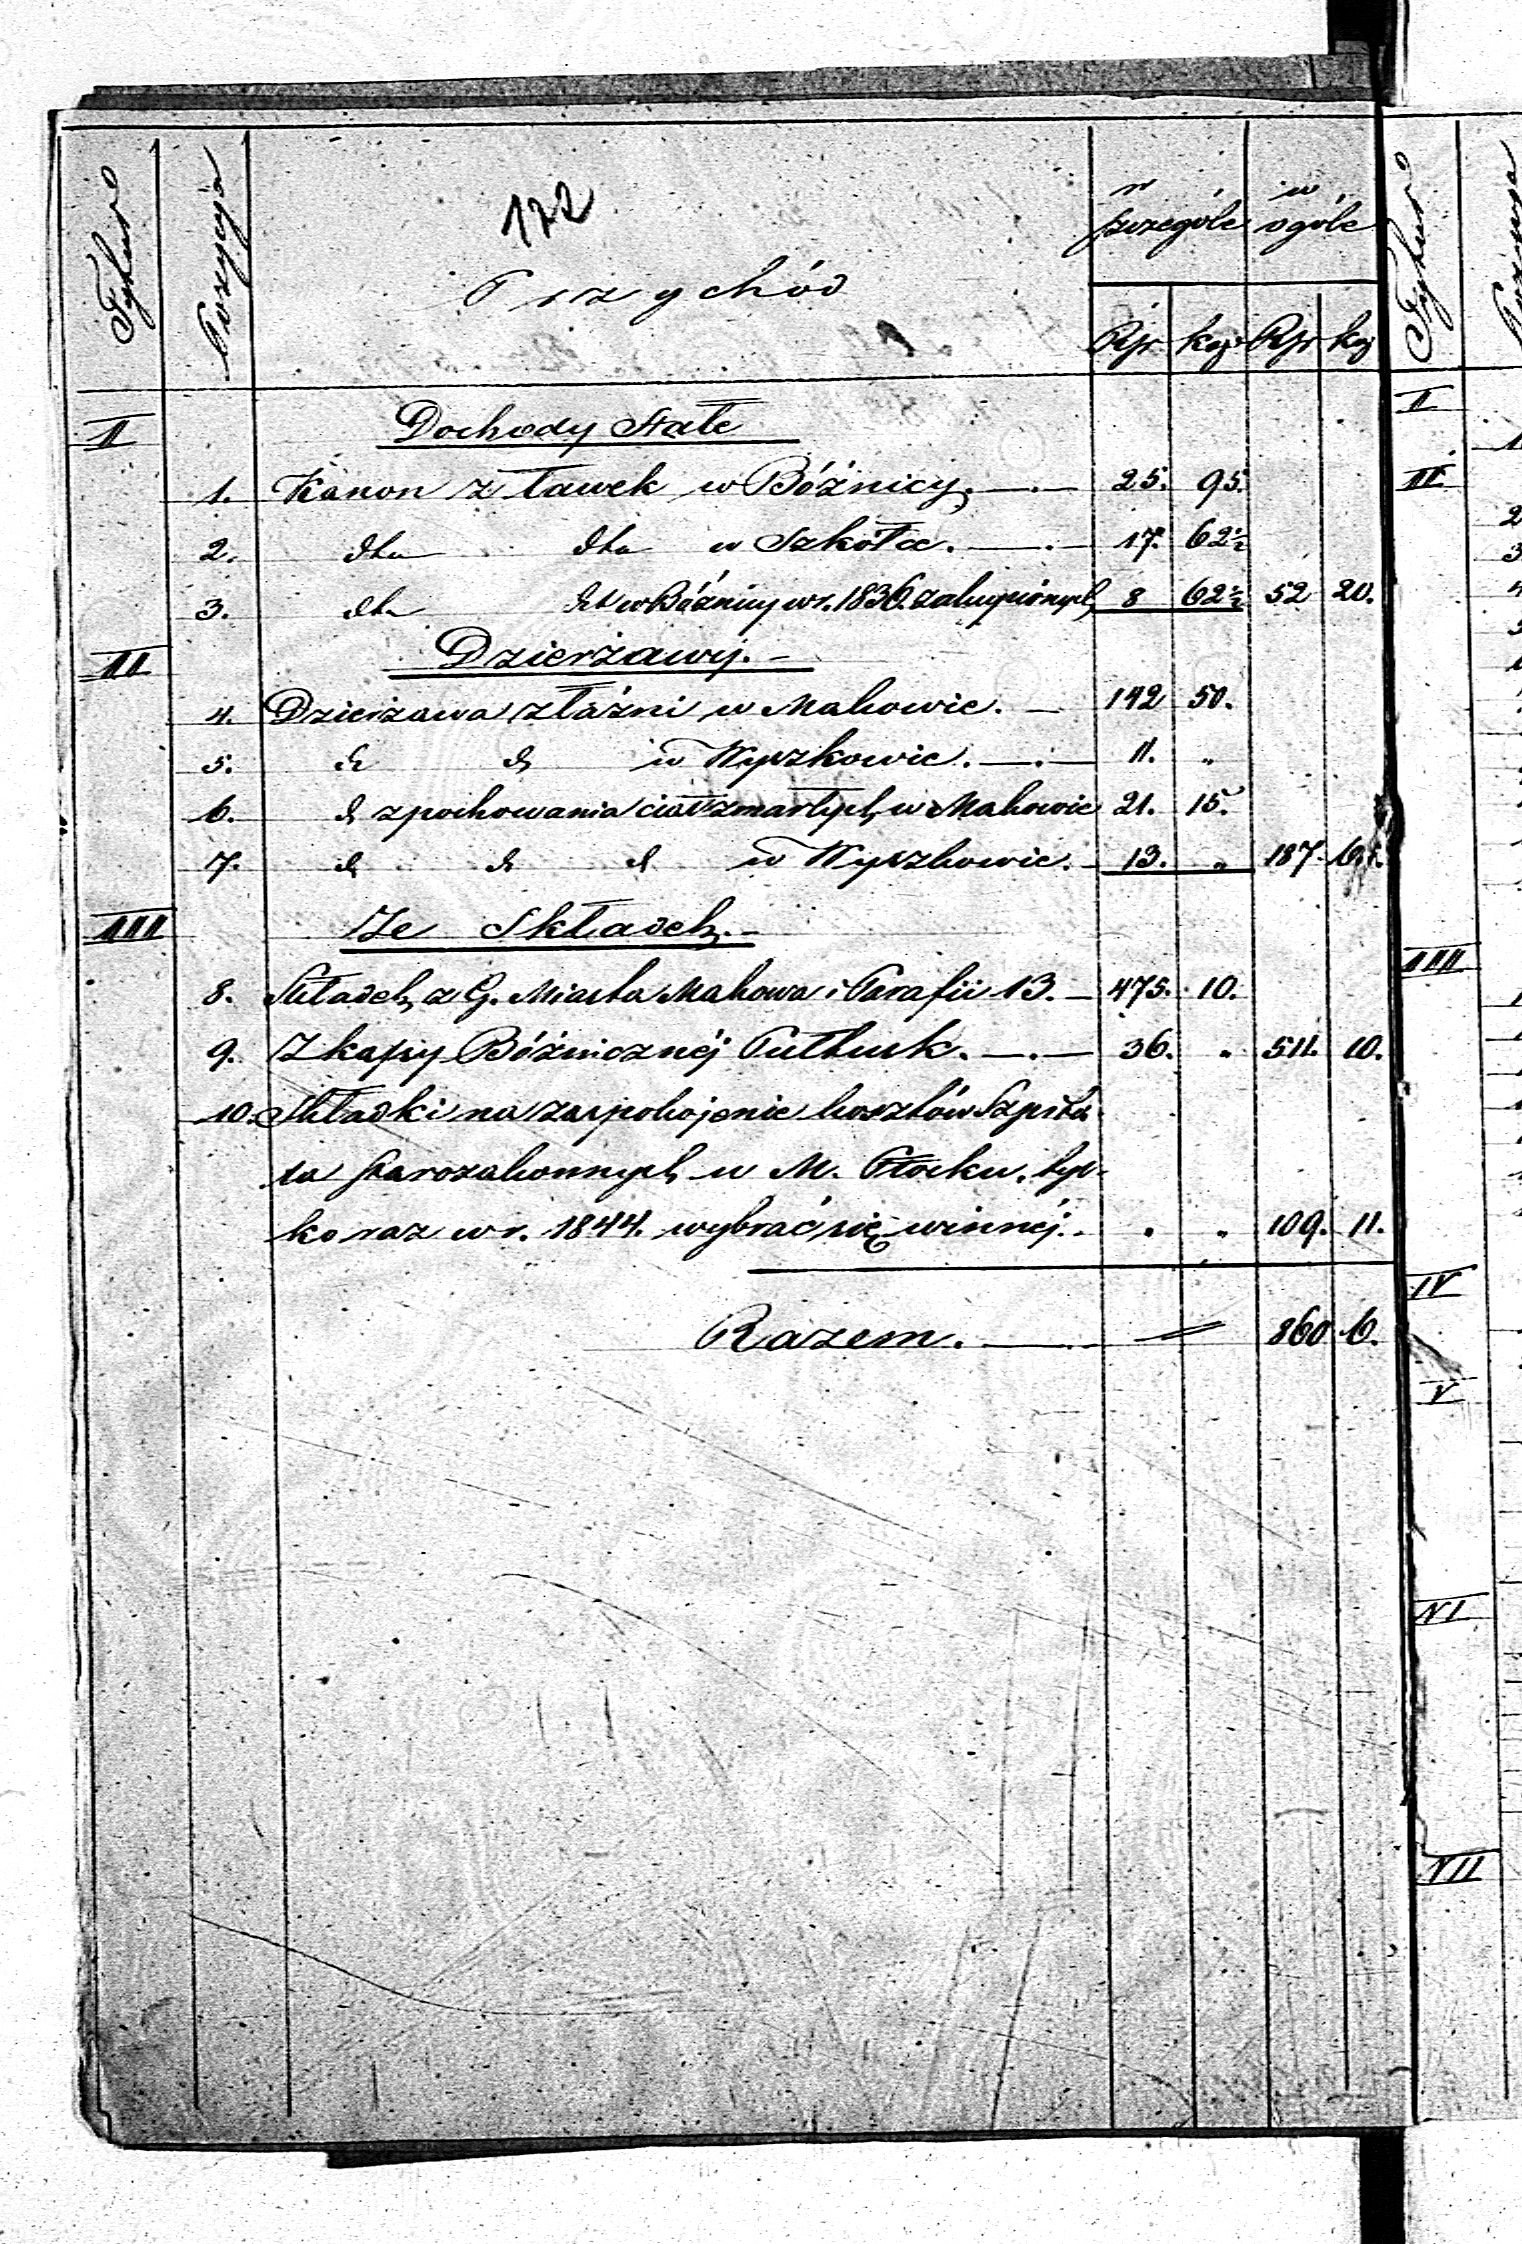 Tytuł Pozycja 122 w szczególe w ogóle
Przychód
Rsr kop Rsr kop
II Dochody Stałe
1. Kanon z ławek w Bóźnicy. 25. 95.
2. dtto dtto w Szkółce. 17. 62½
3. dtto dtto w Bóźnicy w r. 1836. zakupionych 8 62½ 52 20.
II Dzierżawy.
4. Dzierżawa z łaźni w Makowie. 142 50.
5. dt dt w Wyszkowie. 11. "
6. dt z pochowania ciał zmarłych w Makowie 21. 15.
7. dt dt dt w Wyszkowie. 13. " 187. 65.
III Ze Składek.
8. Składek z G. Miasta Makowa i Parafii 13. 475. 10.
9. Z kassy Bóźnicznéj Pułtusk. 36. " 511. 10.
10. Składki na zaspokojenie kosztów Szpita-
la Starozakonnych w M. Płocku, tyl-
ko raz w r. 1844. wybrać się winnéj. " " 109. 11.
Razem. 860 6.
Tytuł
II
II
III
IV
V
VI
VII